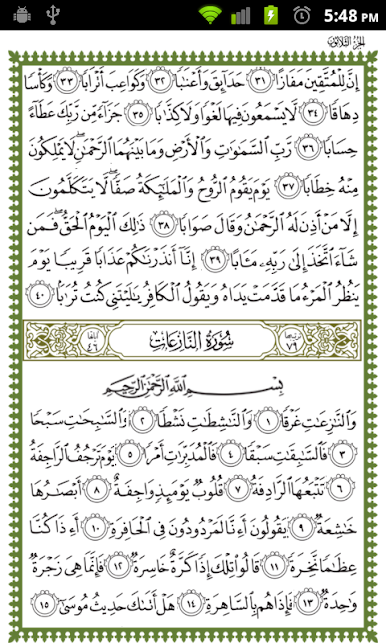 5:48 PM
الجزء الثلاثون
إِنَّ لِلْمُتَّقِينَ مَفَازًا ٣١ حَدَآئِقَ وَأَعْنَٰبًا ٣٢ وَكَوَاعِبَ أَتْرَابًا ٣٣ وَكَأْسًا
دِهَاقًا ٣٤ لَّا يَسْمَعُونَ فِيهَا لَغْوًا وَلَا كِذَّٰبًا ٣٥ جَزَآءً مِّن رَّبِّكَ عَطَآءً
حِسَابًا ٣٦ رَّبِّ ٱلسَّمَٰوَٰتِ وَٱلْأَرْضِ وَمَا بَيْنَهُمَا ٱلرَّحْمَٰنِ ۖ لَا يَمْلِكُونَ
مِنْهُ خِطَابًا ٣٧ يَوْمَ يَقُومُ ٱلرُّوحُ وَٱلْمَلَٰٓئِكَةُ صَفًّا ۖ لَّا يَتَكَلَّمُونَ
إِلَّا مَنْ أَذِنَ لَهُ ٱلرَّحْمَٰنُ وَقَالَ صَوَابًا ٣٨ ذَٰلِكَ ٱلْيَوْمُ ٱلْحَقُّ ۖ فَمَن
شَآءَ ٱتَّخَذَ إِلَىٰ رَبِّهِۦ مَـَٔابًا ٣٩ إِنَّآ أَنذَرْنَٰكُمْ عَذَابًا قَرِيبًا يَوْمَ
يَنظُرُ ٱلْمَرْءُ مَا قَدَّمَتْ يَدَاهُ وَيَقُولُ ٱلْكَافِرُ يَٰلَيْتَنِى كُنتُ تُرَٰبًۢا ٤٠
ترتيبها ٧٩ سُورَةُ النَّازِعَاتِ آياتها ٤٦
بِسْمِ ٱللَّهِ ٱلرَّحْمَٰنِ ٱلرَّحِيمِ
وَٱلنَّٰزِعَٰتِ غَرْقًا ١ وَٱلنَّٰشِطَٰتِ نَشْطًا ٢ وَٱلسَّٰبِحَٰتِ سَبْحًا
٣ فَٱلسَّٰبِقَٰتِ سَبْقًا ٤ فَٱلْمُدَبِّرَٰتِ أَمْرًا ٥ يَوْمَ تَرْجُفُ ٱلرَّاجِفَةُ
٦ تَتْبَعُهَا ٱلرَّادِفَةُ ٧ قُلُوبٌ يَوْمَئِذٍ وَاجِفَةٌ ٨ أَبْصَٰرُهَا
خَٰشِعَةٌ ٩ يَقُولُونَ أَءِنَّا لَمَرْدُودُونَ فِى ٱلْحَافِرَةِ ١٠ أَءِذَا كُنَّا
عِظَٰمًا نَّخِرَةً ١١ قَالُوا۟ تِلْكَ إِذًا كَرَّةٌ خَاسِرَةٌ ١٢ فَإِنَّمَا هِىَ زَجْرَةٌ
وَٰحِدَةٌ ١٣ فَإِذَا هُم بِٱلسَّاهِرَةِ ١٤ هَلْ أَتَىٰكَ حَدِيثُ مُوسَىٰٓ ١٥